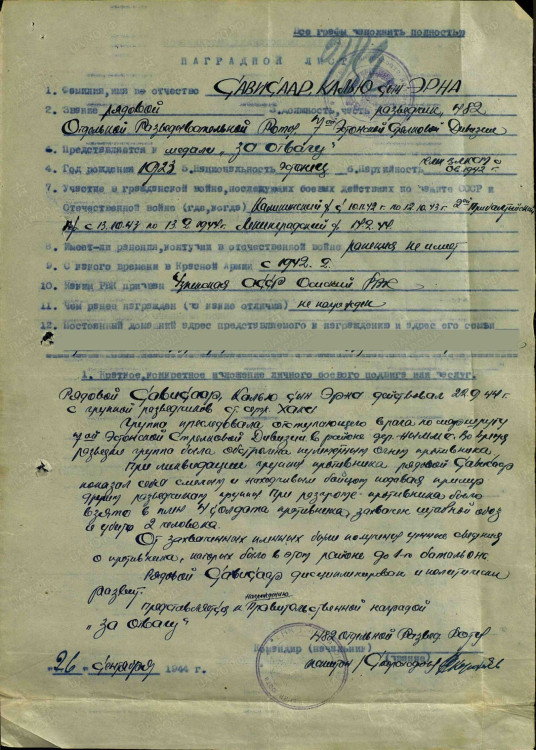 Все графы заполнить полностью
НАГРАДНОЙ ЛИСТ
1. Фамилия, имя и отчество САВИСААР, КАЛЬЮ сын ЭРНА
2. Звание рядовой 3. должность, часть разведчик, 482
Отдельной Разведовательной Роты 7ой Эстонской Стрелковой Дивизии
4. Представляется к медали "За отвагу"
4. Год рождения 1923 5. Национальность эстонец 6. Партийность член ВЛКСМ с
1942 г.
7. Участие в гражданской войне, последующих боевых действиях по защите СССР и
Отечественной войне (где, когда) Калининский ф. с 10.11.42 г. по 12.10.43 г. 2ой Прибалтийский
ф. с 13.10.43 по 13.2.1944 г. Ленинградский ф.
8. Имеет-ли ранения, контузии в отечественной войне ранения не имеет
9. С какого времени в Красной Армии с 1942. 2.
10. Каким РВК призван СССР Омский РВК
11. Чем ранее награжден (за какие отличия) не награжден
12. Постоянный домашний адрес представляемого к награждению и адрес его семьи
1. Краткое, конкретное изложение личного боевого подвига или заслуг.
Рядовой Сависаар, Калью сын Эрна действовал 22.9.44 г.
с группой разведчиков ст. серж. Хакс
Группа преследовала отступающего врага по маршруту
7ой Эстонской Стрелковой Дивизии в районе дер. Во время
разведки группа была обстреляна пулеметным огнем противника
При ликвидации группы противника рядовой Сависаар
показал себя смелым и находчивым бойцом подавая пример
другим разведчикам группы. При разгроме противника было
взято в плен 4 солдата противника, захвачен штабной обоз
и убито 2 человека.
От захваченных пленных были получены ценные сведения
о противнике, которых было в этом районе до 1-го батальона
Рядовой Сависаар дисциплинирован и политически
развит.
Представляется к награждению Правительственной наградой
"За отвагу"
482 отдельной Развед. Роты
Командир (начальник)
капитан
"26" сентября 1944 г.